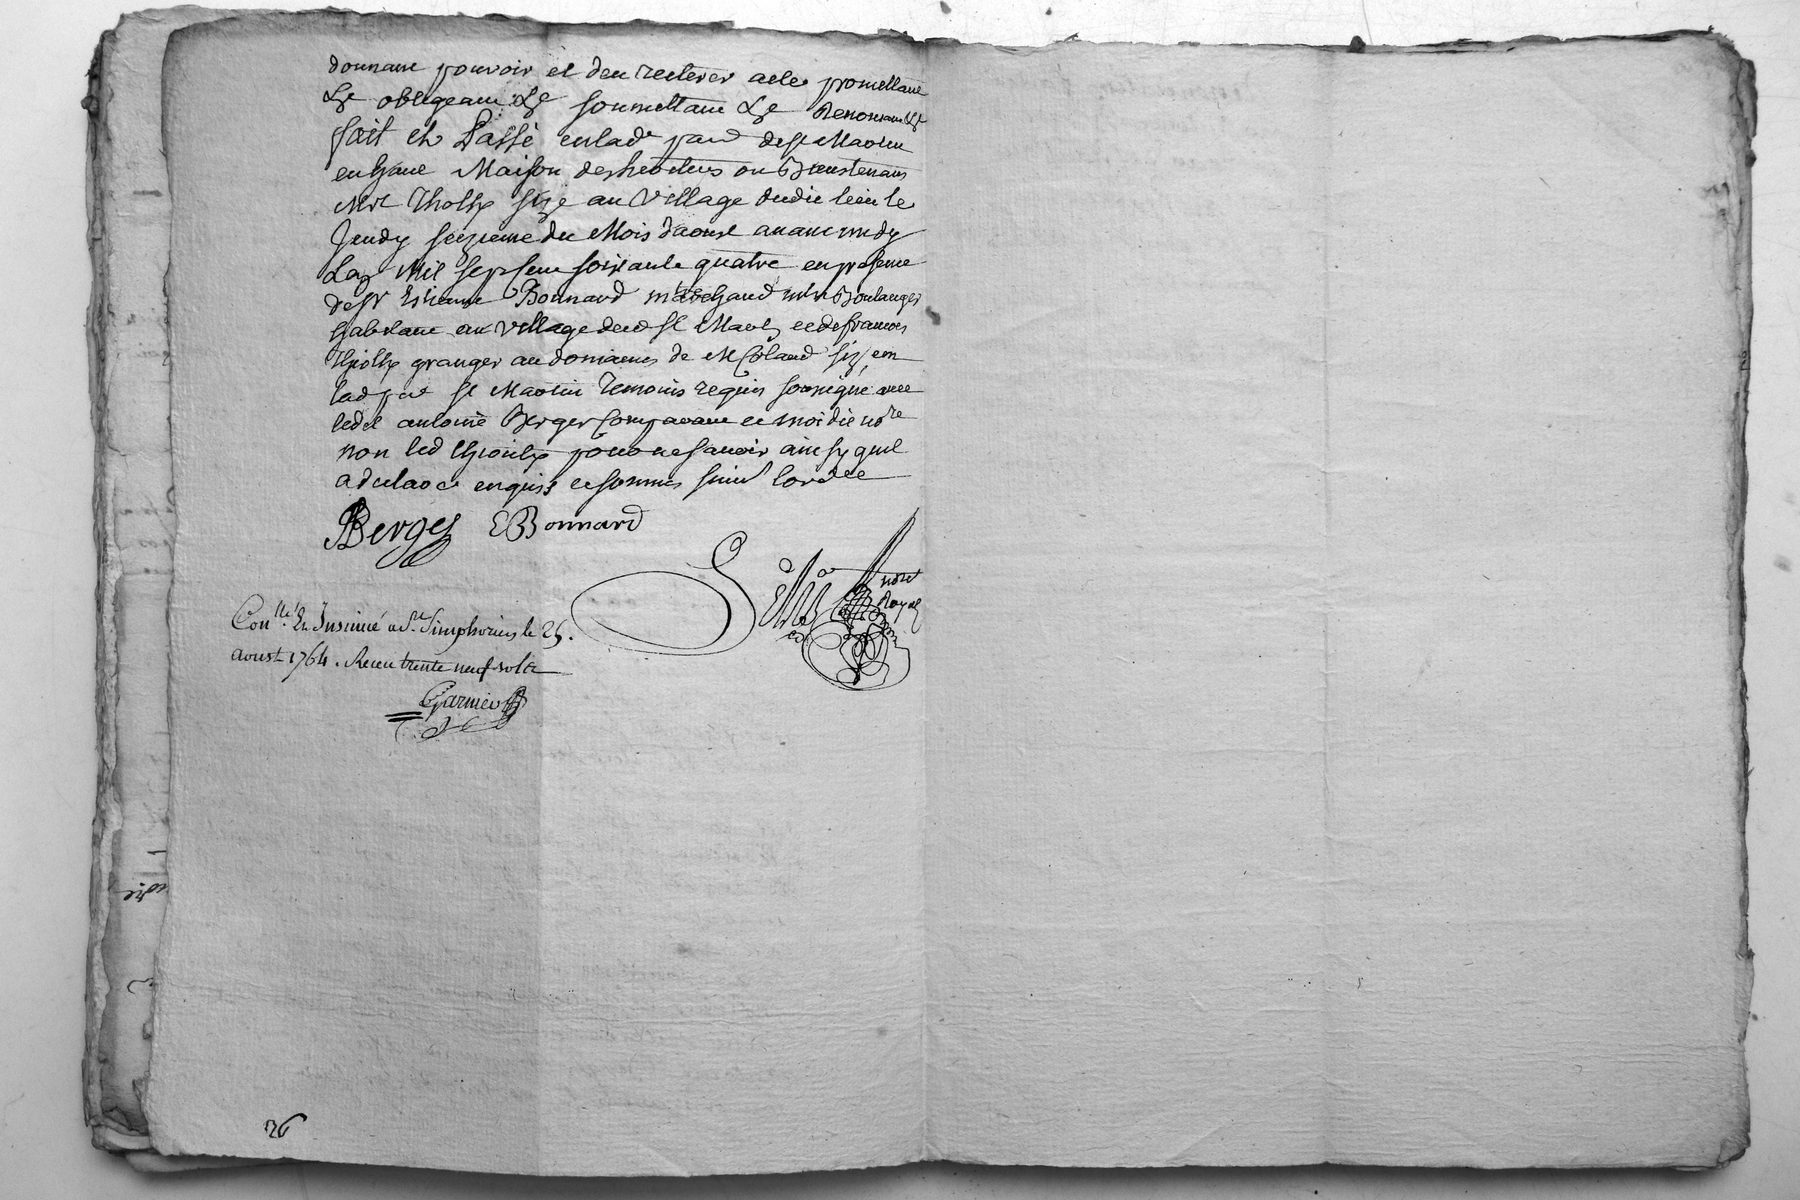 donnant pouvoir et d'en retirer acte promettant
&c obligeant &c soumettant &c Renonçant &c
fait et Passé en lad par de st Martin
en haut Maison des heritiers ou Bientenans
Tholly size au Village dudit lieu le
Jeudy seizieme du Mois d'aoust avant midy
Lan Mil sept cent soixante quatre en presence
de sr Estienne Bonnard marchand Boulanger
habitant au village dud st Mart et de francois
granger au domaine de M size en
lad par st Martin Temoins requis soussigné avec
led sr antoine Berger comparant et moidit nore
non led pour ne savoir ainsy quil
a declaré enquis et sommés suivt lordce
Berger EBonnard
nore
Royal
Conllé Et Insinué a St. Simphorien le 25.
aoust 1764. Receu trente neuf sols
Garnier
26